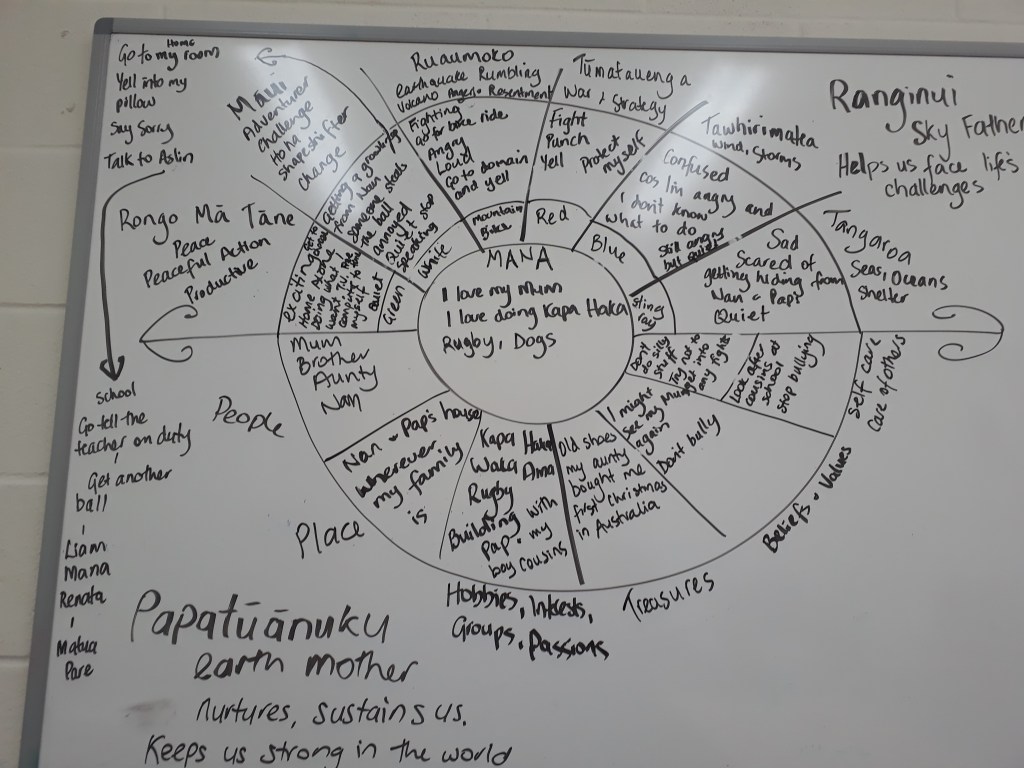 Go to my room
Home
Yell into my
pillow
Say Sorry
Talk to Aslin
Māui
Adventurer
Challenge
shapeshifter
Change
Ruaumoko
earthquake Rumbling
Volcano Anger. Resentment
Tūmatauenga
War & Strategy
Tawhirimatea
wind, storms
Ranginui
Sky Father
Helps us face life's
challenges
Rongo Mā Tāne
Peace
Peaceful Action
Productive
getting a growing
from Nan
someone steals
the ball
annoyed
Quiet stop
speaking
White
Fighting
go for bike ride
Angry
Loud
Go to domain
and yell
mountain
bike
Fight
Punch
Yell
Protect
myself
Red
Confused
cos I'm angry and
I don't know
what to do
still angry
but quiet
Blue
Sad
Scared of
getting hiding from
Nan & Papi
Quiet
Sting
ray
Tangaroa
Seas, Oceans
Shelter
quiet
Green
MANA
I love my Mum
I love doing Kapa Haka
Rugby, Dogs
Mum
Brother
Aunty
Nan
People
Nan & Pap's house
wherever
my family
is
Place
Kapa Haka
Waka Ama
Rugby
Building with
Pap & my
boy cousins
Hobbies, Interests,
Groups, Passions
Old shoes
my aunty
bought me
first Christmas
in Australia
Treasures
I might
see my Mum
again
Don't bully
Don't
do silly
stuff
Try not to
get into
any fights
Look after
cousins at
school
stop bullying
Beliefs & Values
self care
care of others
School
Go tell the
teacher on duty
Get another
ball
Liam
Mana
Renata
Matua
Pare
Papatūānuku
earth mother
Nurtures, sustains us.
Keeps us strong in the world